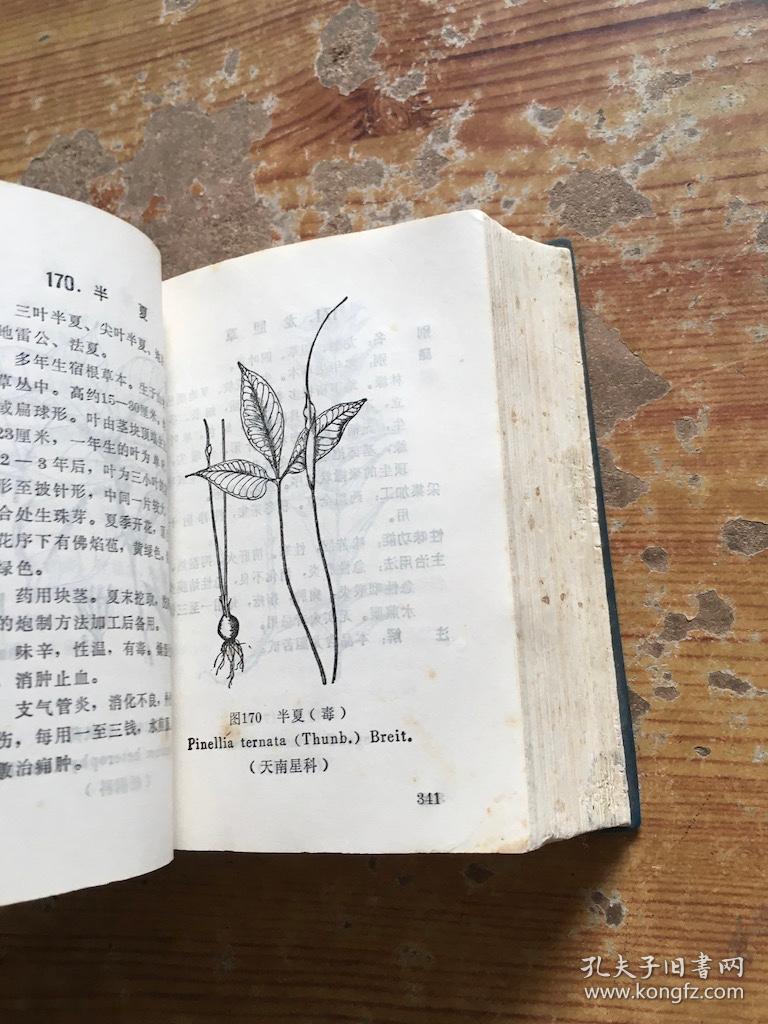 170. 半 夏
三叶半夏、尖叶半夏、
地雷公、法夏。
多年生宿根草本。生于
草丛中。高约15—30厘米，
或扁球形。叶由茎块顶端
23厘米，一年生的叶为单
2—3年后，叶为三小叶
形至披针形，中间一片较大
合处生珠芽。夏季开花，
花序下有佛焰苞，黄绿色。
绿色。
药用块茎。夏末挖取，
的炮制方法加工后备用。
味辛，性温，有毒。
消肿止血。
支气管炎，消化不良，
伤，每用一至三钱，水煎
敷治痈肿。
图170 半夏（毒）
Pinellia ternata (Thunb.) Breit.
（天南星科）
341
孔夫子旧书网
www.kongfz.com